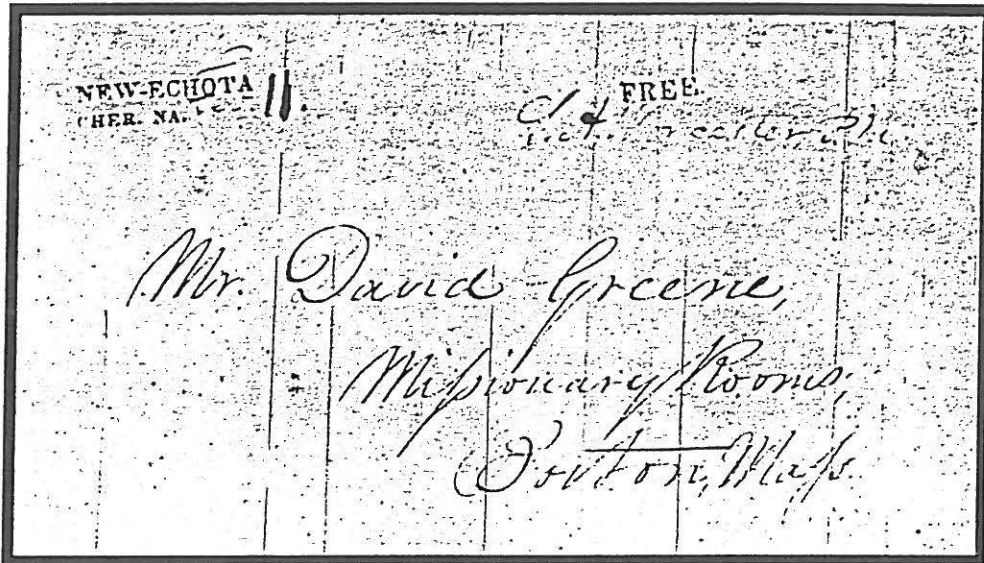 NEW-ECHOTA 11.
CHER. NA.
FREE.
Mr. David Greene,
Miſsionary Rooms,
Boston, Maſs.